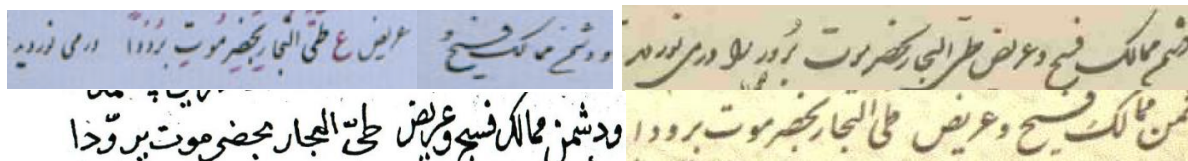 ودشمن ممالک فسیح و عریض ع طیّ التجار بحضرموت برودا در می نوردید
دشمن ممالک فسیح و عریض طیّ التجار بحضرموت برودا در می نوردید
ودشمن ممالک فسیح و عریض طیّ التجار بحضرموت بروّدا
دشمن ممالک فسیح و عریض طی التجار بحضرموت برودا